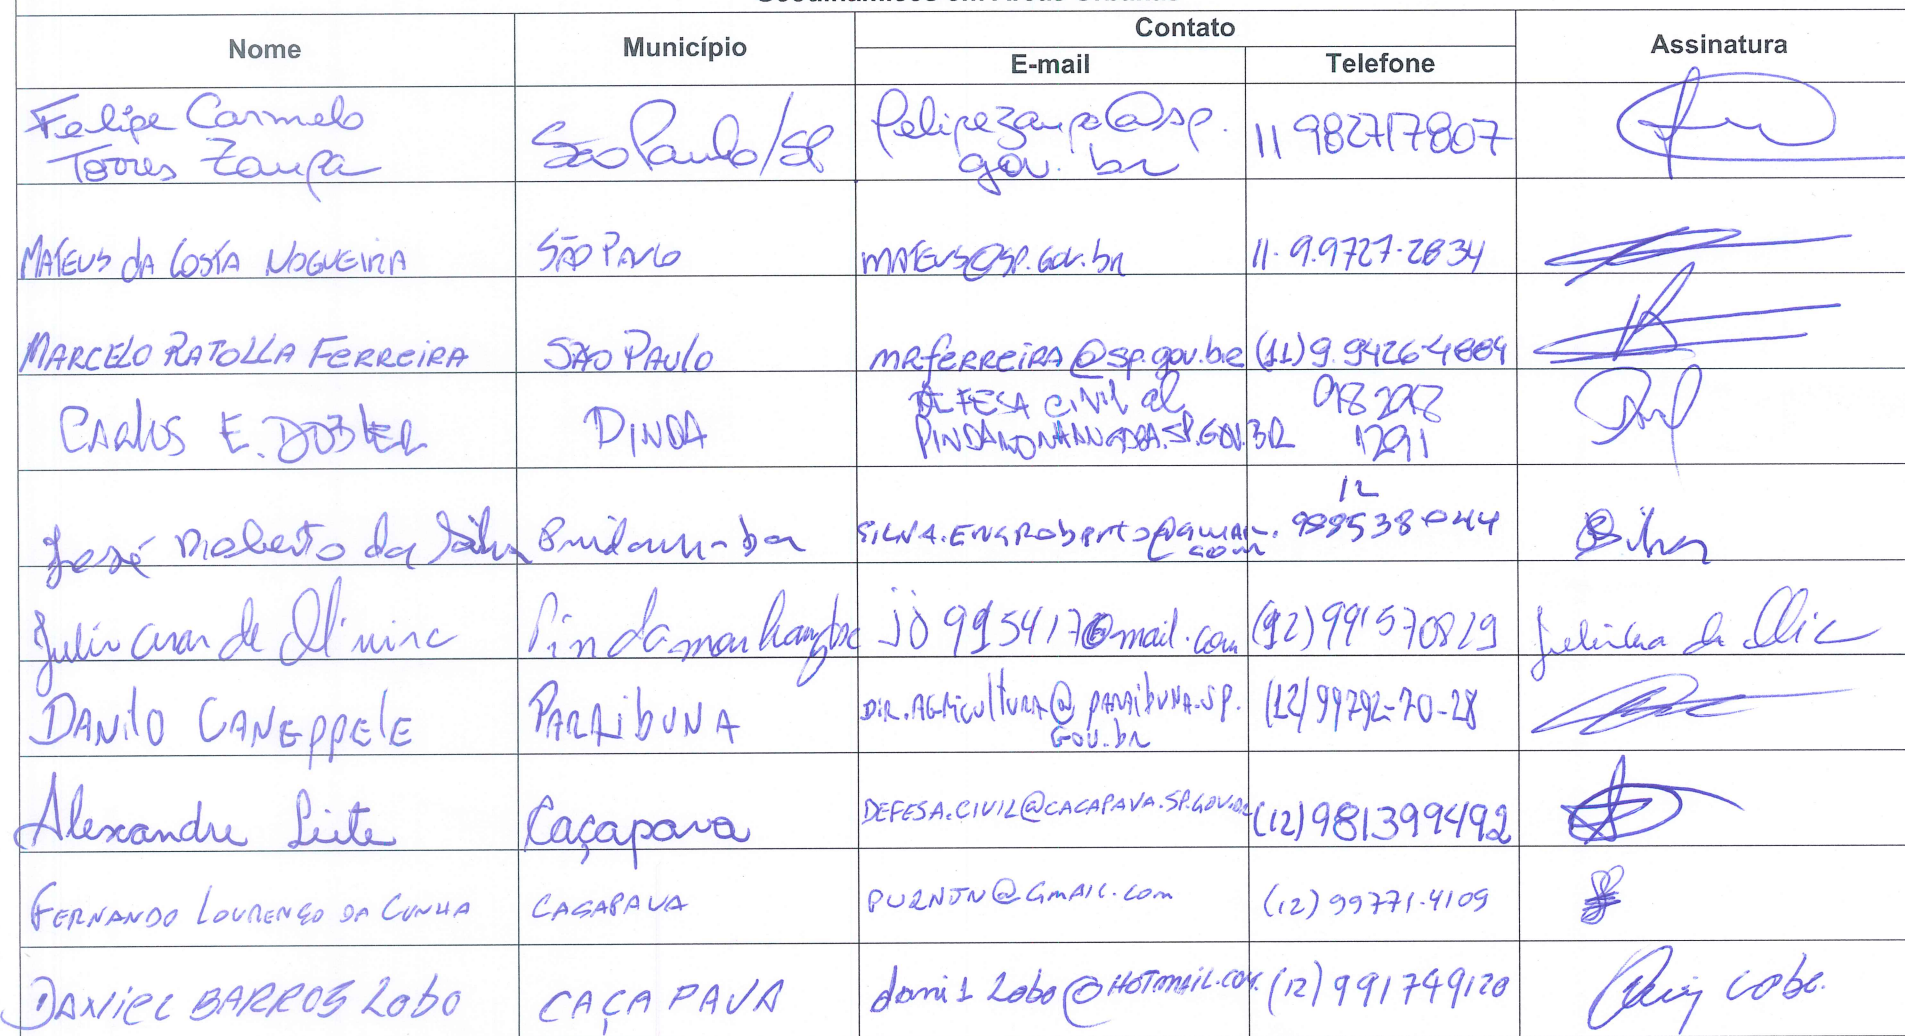 Nome Município Contato Assinatura
E-mail Telefone
Felipe Carmelo
Torres Zaupa São Paulo/SP felipezaupa@sp.
gov.br 11 982717807
MATEUS DA COSTA NOGUEIRA SÃO PAULO MATEUS@SP.GOV.br 11-9.9727-2834
MARCELO RATOLLA FERREIRA SÃO PAULO MRFERREIRA@sp.gov.br (11)9.9426-4884
CARLOS E. PINDA DEFESA CIVIL @
PINDAMONHANGABA.SP.GOV.BR 98298
1291
José Roberto da Silva SILVA.ENGROBERTO@GMAIL.
com 12
Silva
de Pindamonhangaba jo9915417@mail.com (12)991570829
DANILO CANEPPELE PARAIBUNA DIR.AGRICULTURA@PARAIBUNA.SP.
GOV.br (12)99792-70-28
Alexandre Leite Caçapava DEFESA.CIVIL@CACAPAVA.SP.GOV.BR (12)981399492
FERNANDO LOURENÇO DA CUNHA CAÇAPAVA PURNJN@GMAIL.com (12)99771-4109
DANIEL BARROS LOBO CAÇAPAVA dani1lobo@HOTMAIL.COM. (12)991749120